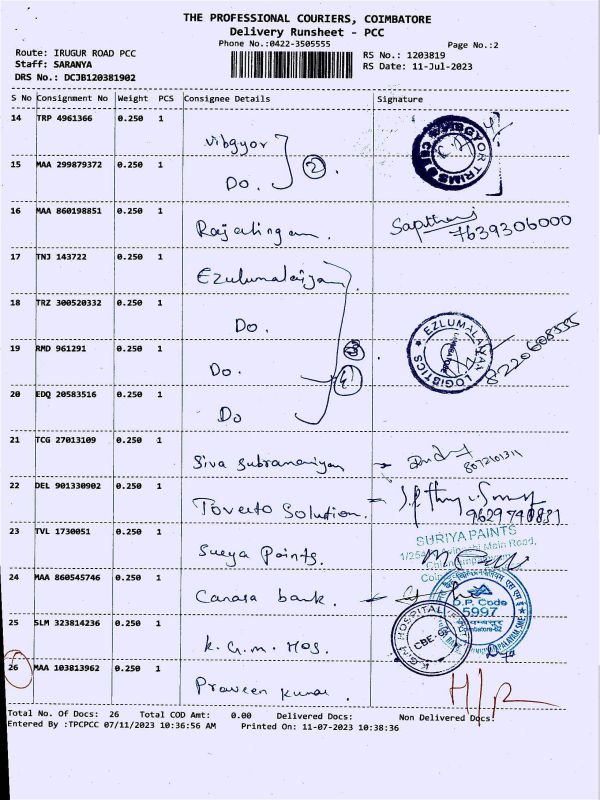 THE PROFESSIONAL COURIERS, COIMBATORE
Delivery Runsheet - PCC
Phone No.:0422-3505555
Page No.:2
Route: IRUGUR ROAD PCC
RS No.: 1203819
Staff: SARANYA
RS Date: 11-Jul-2023
DRS No.: DCJB120381902
S No Consignment No Weight PCS Consignee Details Signature
14 TRP 4961366 0.250 1 Vibgyor
VIBGYOR TRIMS CBE
15 MAA 299879372 0.250 1 Do. 2
16 MAA 860198851 0.250 1 Rajalingam. 7639306000
17 TNJ 143722 0.250 1 Ezulumalaiyan
18 TRZ 300520332 0.250 1 Do.
EZLUMALAYAN LOGISTICS
8220608555
19 RMD 961291 0.250 1 Do. 4
20 EDQ 20583516 0.250 1 Do
21 TCG 27013109 0.250 1 Siva Subramaniyan
22 DEL 901330902 0.250 1 Toverto Solution. 9629740831
23 TVL 1730051 0.250 1 Surya Points.
SURIYA PAINTS
Main Road,
24 MAA 860545746 0.250 1 Canara bank.
D.P. Code
5997
Coimbatore-62
25 SLM 323814236 0.250 1 K.G.m. Hos.
K.G.M HOSPITAL
CBE-
26 MAA 103813962 0.250 1 Praveen Kumar.
Total No. Of Docs: 26 Total COD Amt: 0.00 Delivered Docs: Non Delivered Docs:
Entered By :TPCPCC 07/11/2023 10:36:56 AM Printed On: 11-07-2023 10:38:36